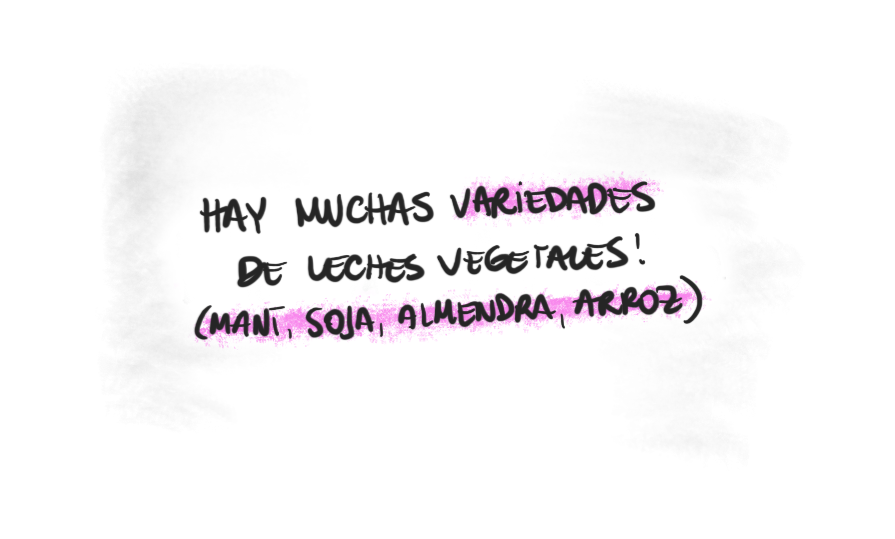 HAY MUCHAS VARIEDADES
DE LECHES VEGETALES!
(MANÍ, SOJA, ALMENDRA, ARROZ)